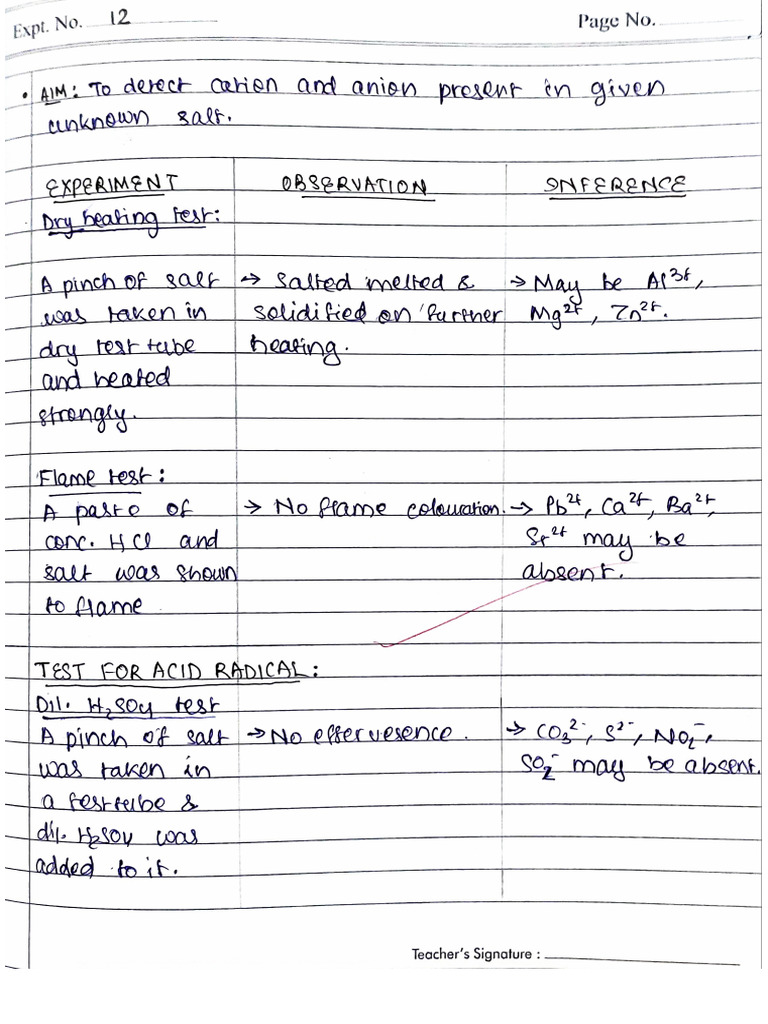 Expt. No. 12
Page No.
• AIM: To detect cation and anion present in given
unknown salt.
EXPERIMENT
OBSERVATION
INFERENCE
Dry heating test:
A pinch of salt
was taken in
dry test tube
and heated
strongly.
→ Salted melted &
solidified on further
heating.
→ May be Al³⁺,
Mg²⁺, Zn²⁺.
Flame test:
A paste of
conc. HCl and
salt was shown
to flame
→ No flame colouration.
→ Pb²⁺, Ca²⁺, Ba²⁺,
Sr²⁺ may be
absent.
TEST FOR ACID RADICAL:
Dil. H₂SO₄ test
A pinch of salt
was taken in
a test tube &
dil. H₂SO₄ was
added to it.
→ No effervesence.
→ CO₃²⁻, S²⁻, NO₂⁻,
SO₂⁻ may be absent.
Teacher's Signature :